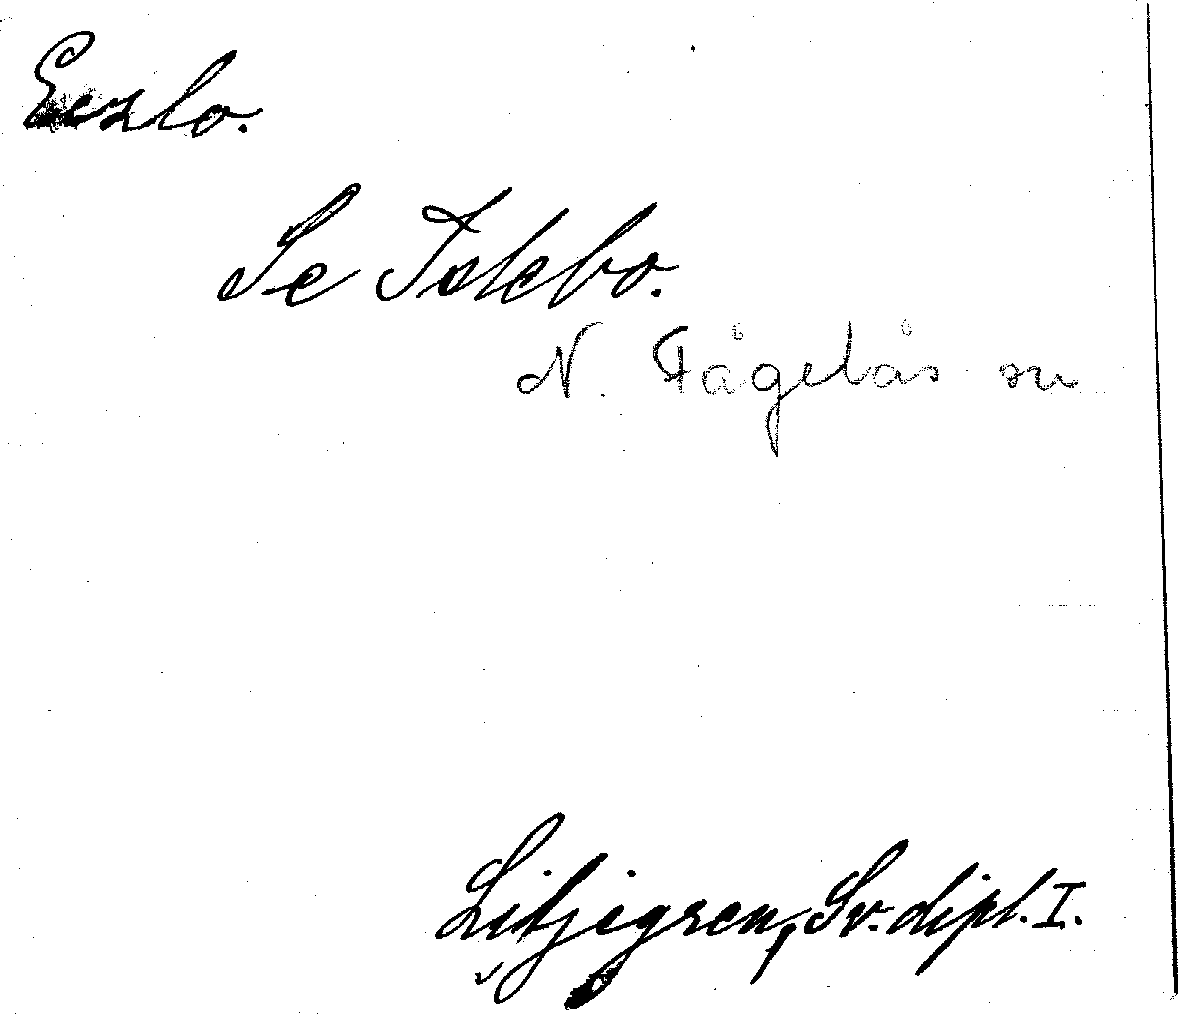 Eeslo.
Se Islebo.
N. Fågelås sn
Liljegren, Sv. dipl. I.